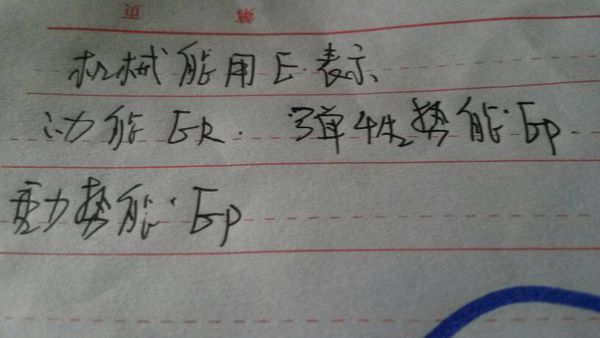 第 页
机械能用E表示、
动能 Ek. 弹性势能·Ep
重力势能·Ep